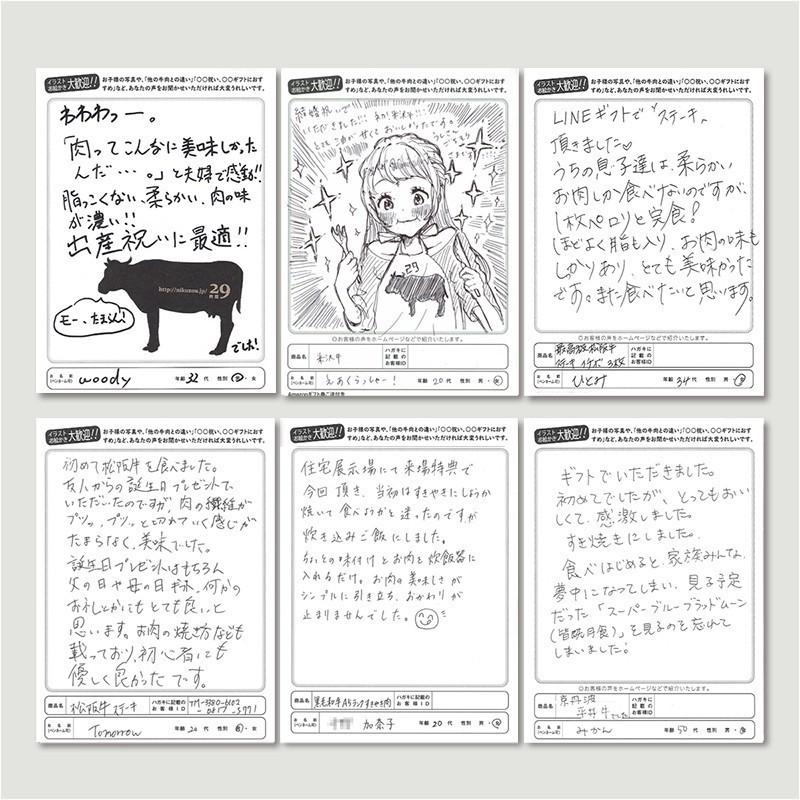 イラスト
お絵かき 大歓迎!!
お子様の写真や、「他の牛肉との違い」「〇〇祝い、〇〇ギフトにおす
すめ」など、あなたの声をお聞かせいただければ大変うれしいです。
わわわっー。
「肉ってこんなに美味しかった
んだ・・・。」と夫婦で感動!!
脂っこくない、柔らかい、肉の味
が濃い!!
出産祝いに最適!!
http://nikuzou.jp/ 29
モー、たまらん!
でした!
お名前
(ペンネーム可)
woody
年齢 32 代 性別 男・女
イラスト
お絵かき 大歓迎!!
お子様の写真や、「他の牛肉との違い」「〇〇祝い、〇〇ギフトにおす
すめ」など、あなたの声をお聞かせいただければ大変うれしいです。
結婚祝いで
いただきました!!!
とても油が甘くておいしかったです。
29
◎お客様の声をホームページなどで紹介いたします。
商品名 米沢牛
ハガキに
記載の
お客様ID
お名前
(ペンネーム可)
えあくらっしゃー!
年齢 20 代 性別 男・女
イラスト
お絵かき 大歓迎!!
お子様の写真や、「他の牛肉との違い」「〇〇祝い、〇〇ギフトにおす
すめ」など、あなたの声をお聞かせいただければ大変うれしいです。
LINEギフトで"ステーキ"
頂きました♡
うちの息子達は、柔らかい
お肉しか食べないのですが、
1枚ペロリと完食!
ほどよく脂も入り、お肉の味も
しっかりあり、とても美味かった
です。また食べたいと思います。
◎お客様の声をホームページなどで紹介いたします。
商品名 最高級松阪牛
ステーキ イチボ 3枚
ハガキに
記載の
お客様ID
お名前
(ペンネーム可)
ひとみ
年齢 34 代 性別 男・女
イラスト
お絵かき 大歓迎!!
お子様の写真や、「他の牛肉との違い」「〇〇祝い、〇〇ギフトにおす
すめ」など、あなたの声をお聞かせいただければ大変うれしいです。
初めて松阪牛を食べました。
友人からの誕生日プレゼントで
いただいたのですが、肉の繊維が
プツッ、プツッと切れていく感じが
たまらなく、美味でした。
誕生日プレゼントはもちろん
父の日や母の日ギフト、何かの
お礼とかにもとても良いと
思います。お肉の焼き方なども
載っており、初心者にも
優しく良かったです。
商品名 松阪牛ステーキ
ハガキに記載の
お客様ID
お名前
(ペンネーム可)
Tomorrow
年齢 20 代 性別 男・女
イラスト
お絵かき 大歓迎!!
お子様の写真や、「他の牛肉との違い」「〇〇祝い、〇〇ギフトにおす
すめ」など、あなたの声をお聞かせいただければ大変うれしいです。
住宅展示場にて来場特典で
今回頂き、当初はすきやきにしようか
焼いて食べようかと迷ったのですが
炊き込みご飯にしました。
ちょっとの味付けとお肉を炊飯器に
入れるだけ。お肉の美味しさが
シンプルに引き立ち、おかわりが
止まりませんでした。
商品名 黒毛和牛A5ランクすきやき肉
ハガキに記載の
お客様ID
お名前
(ペンネーム可)
加奈子
年齢 20 代 性別 男・女
イラスト
お絵かき 大歓迎!!
お子様の写真や、「他の牛肉との違い」「〇〇祝い、〇〇ギフトにおす
すめ」など、あなたの声をお聞かせいただければ大変うれしいです。
ギフトでいただきました。
初めてでしたが、とってもおい
しくて、感激しました。
すき焼きにしました。
食べはじめると、家族みんな、
夢中になってしまい、見る予定
だった「スーパーブルーブラッドムーン
(皆既月食)」を見るのを忘れて
しまいました!
◎お客様の声をホームページなどで紹介いたします。
商品名 京丹波
平井牛でした
ハガキに
記載の
お客様ID
お名前
(ペンネーム可)
みかん
年齢 50 代 性別 男・女